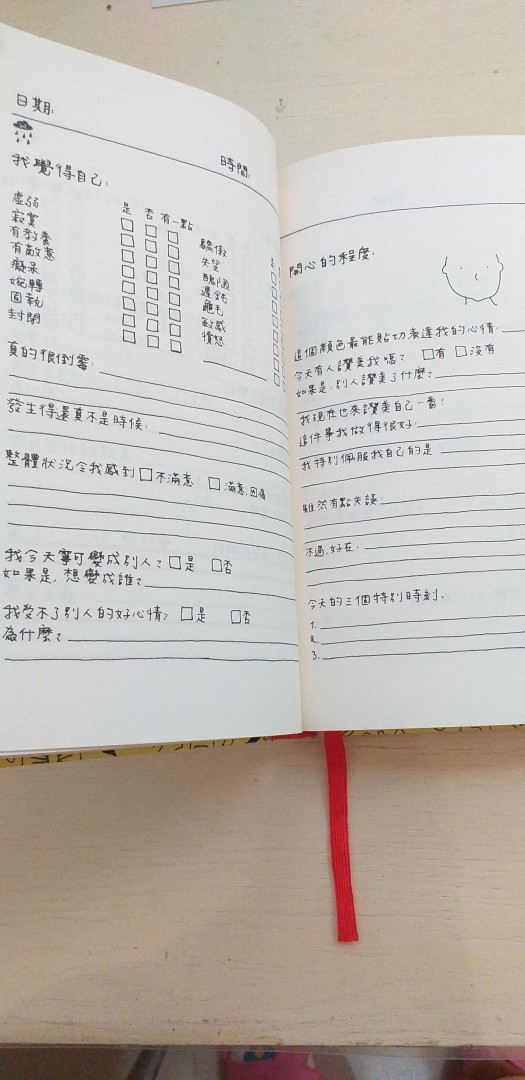 日期:
時間:
我覺得自己:
是 否 有一點
虛弱
寂寞
有教養
有敵意
癡呆
婉轉
固執
封閉
驕傲
失望
醜陋
遲鈍
龜毛
敏感
憤怒
真的很倒霉:
發生得還真不是時候:
整體狀況令我感到 □不滿意 □滿意,因為
我今天寧可變成別人? □是 □否
如果是,想變成誰?
我受不了別人的好心情? □是 □否
為什麼?
開心的程度:
這個顏色最能貼切表達我的心情:
今天有人讚美我嗎? □有 □沒有
如果是,別人讚美了什麼?
我現在也來讚美自己一番!
這件事我做得很好:
我特別佩服我自己的是
雖然有點失誤:
不過,好在:
今天的三個特別時刻:
1.
2.
3.